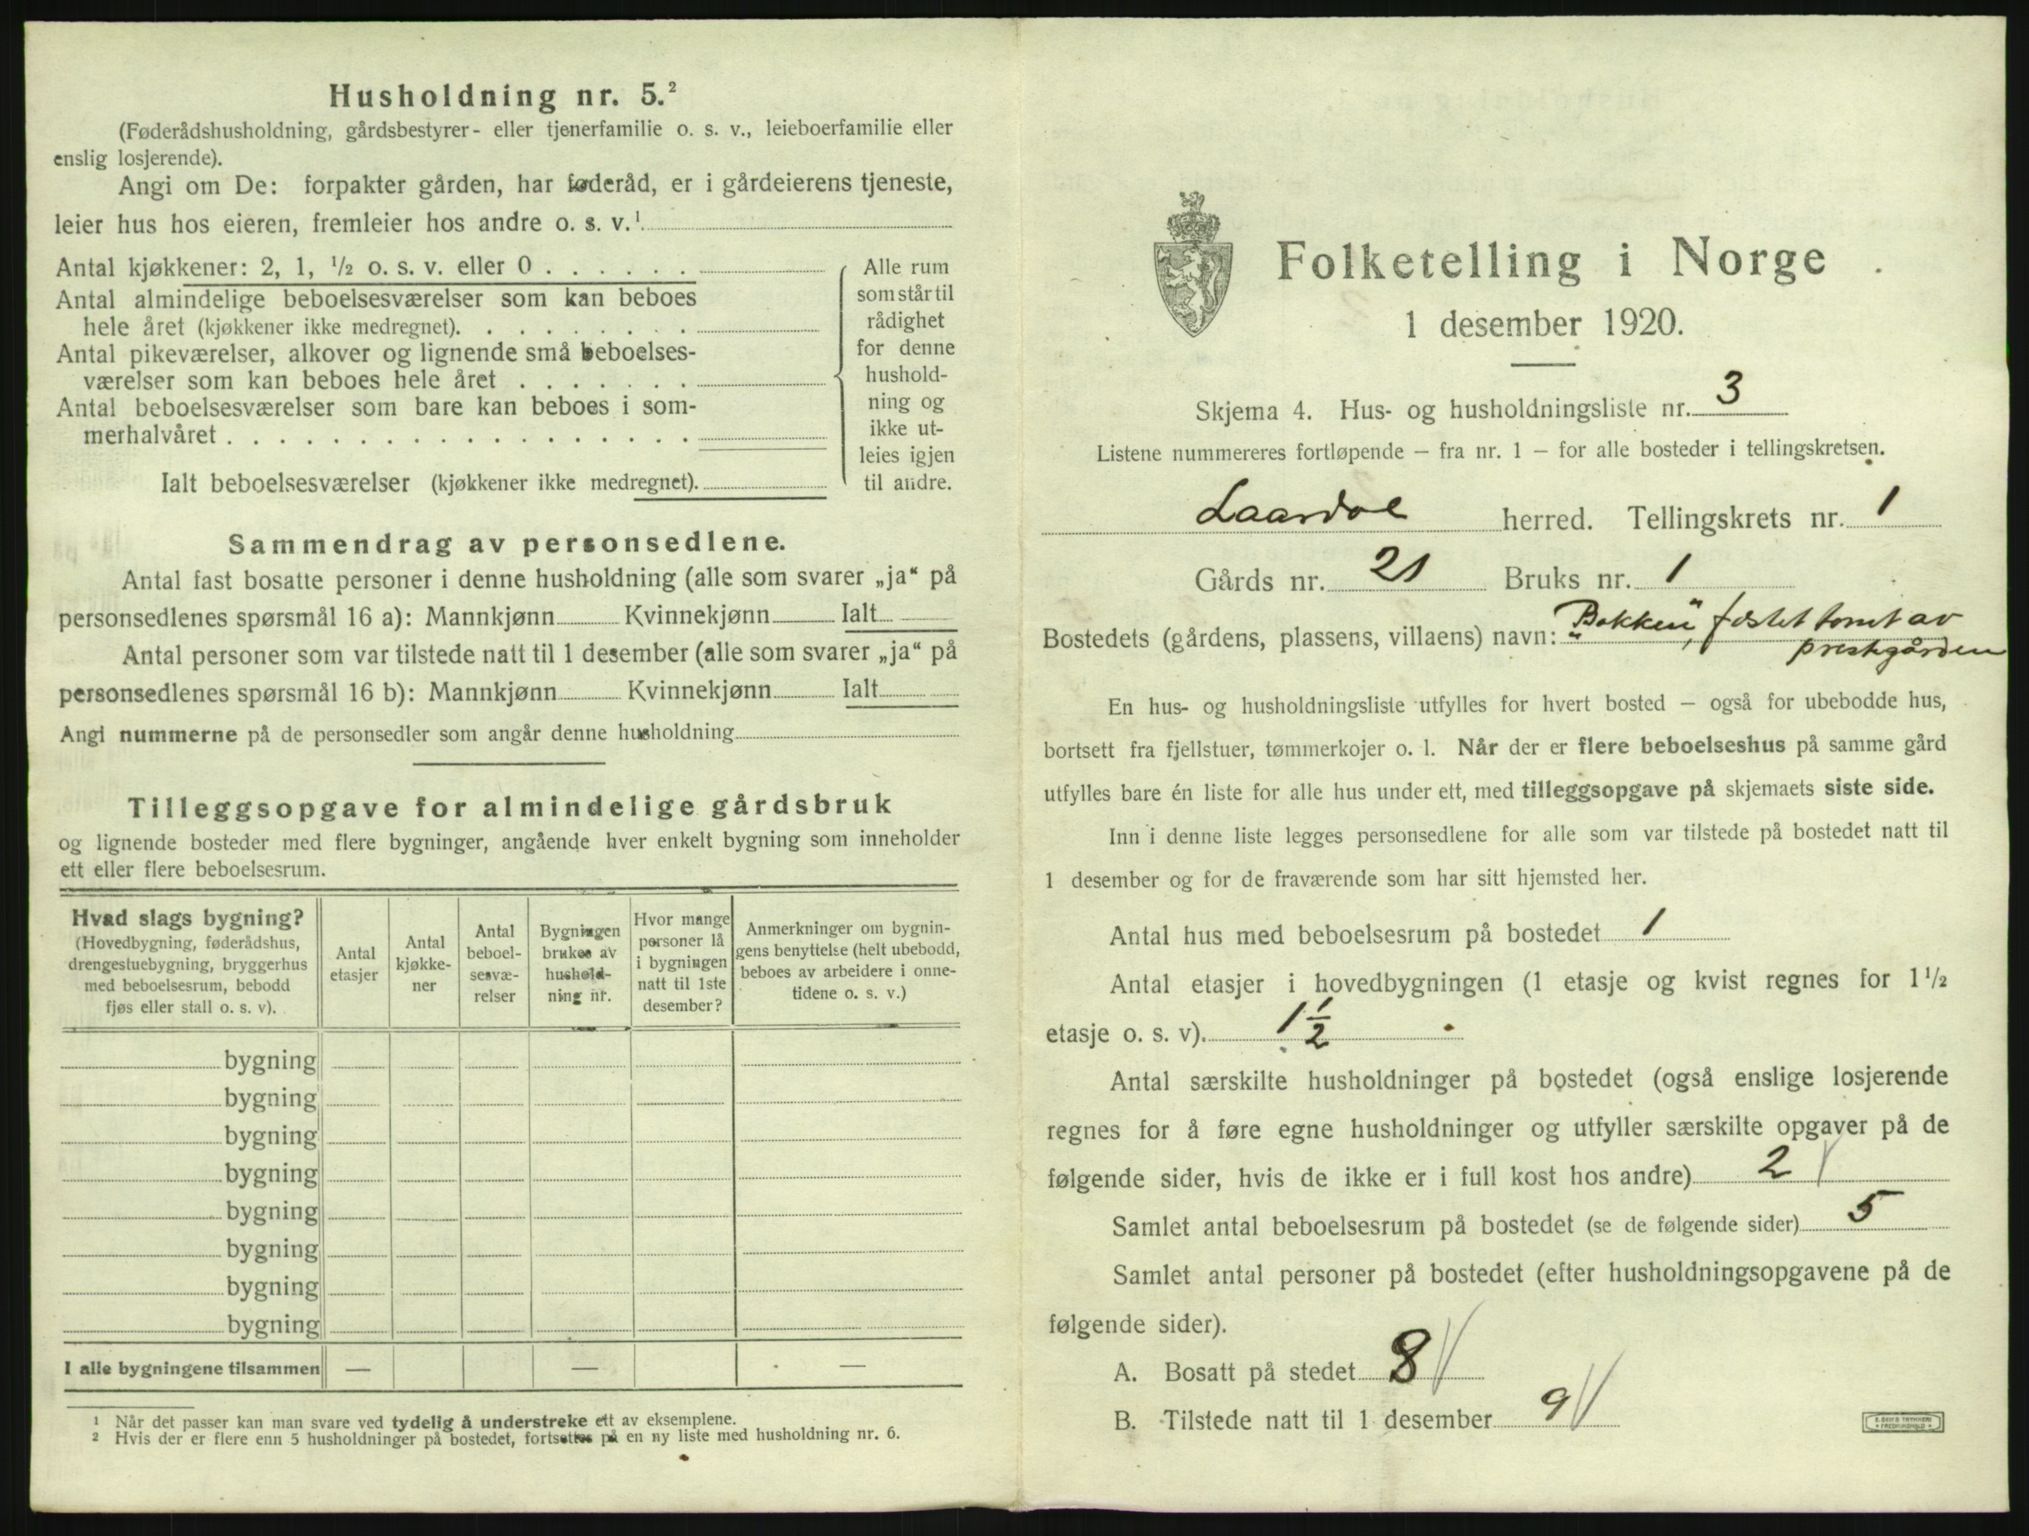 Husholdning nr. 5.²
(Føderådshusholdning, gårdsbestyrer- eller tjenerfamilie o. s. v., leieboerfamilie eller
enslig losjerende).
Angi om De: forpakter gården, har føderåd, er i gårdeierens tjeneste,
leier hus hos eieren, fremleier hos andre o. s. v.¹
Antal kjøkkener: 2, 1, ½ o. s. v. eller 0 . . . . . .
Antal almindelige beboelsesværelser som kan beboes
hele året (kjøkkener ikke medregnet). . . . . . . . .
Antal pikeværelser, alkover og lignende små beboelses-
værelser som kan beboes hele året . . . . . . .
Antal beboelsesværelser som bare kan beboes i som-
merhalvåret . . . . . . . . . . . . . . . . . .
Ialt beboelsesværelser (kjøkkener ikke medregnet).
Alle rum
som står til
rådighet
for denne
hushold-
ning og
ikke ut-
leies igjen
til andre.
Sammendrag av personsedlene.
Antal fast bosatte personer i denne husholdning (alle som svarer „ja“ på
personsedlenes spørsmål 16 a): Mannkjønn Kvinnekjønn Ialt
Antal personer som var tilstede natt til 1 desember (alle som svarer „ja“ på
personsedlenes spørsmål 16 b): Mannkjønn Kvinnekjønn Ialt
Angi nummerne på de personsedler som angår denne husholdning
Tilleggsopgave for almindelige gårdsbruk
og lignende bosteder med flere bygninger, angående hver enkelt bygning som inneholder
ett eller flere beboelsesrum.
Hvad slags bygning?
(Hovedbygning, føderådshus,
drengestuebygning, bryggerhus
med beboelsesrum, bebodd
fjøs eller stall o. s. v).
Antal
etasjer
Antal
kjøkke-
ner
Antal
beboel-
sesvæ-
relser
Bygningen
brukes av
hushold-
ning nr.
Hvor mange
personer lå
i bygningen
natt til 1ste
desember?
Anmerkninger om bygnin-
gens benyttelse (helt ubebodd,
beboes av arbeidere i onne-
tidene o. s. v.)
bygning
bygning
bygning
bygning
bygning
bygning
bygning
bygning
I alle bygningene tilsammen — — —
¹ Når det passer kan man svare ved tydelig å understreke ett av eksemplene.
² Hvis der er flere enn 5 husholdninger på bostedet, fortsettes på en ny liste med husholdning nr. 6.
Folketelling i Norge
1 desember 1920.
Skjema 4. Hus- og husholdningsliste nr. 3
Listene nummereres fortløpende – fra nr. 1 – for alle bosteder i tellingskretsen.
Laardal herred. Tellingskrets nr. 1
Gårds nr. 21 Bruks nr. 1
Bostedets (gårdens, plassens, villaens) navn: „Bakken“, festet tomt av
prestegården
En hus- og husholdningsliste utfylles for hvert bosted – også for ubebodde hus,
bortsett fra fjellstuer, tømmerkojer o. l. Når der er flere beboelseshus på samme gård
utfylles bare én liste for alle hus under ett, med tilleggsopgave på skjemaets siste side.
Inn i denne liste legges personsedlene for alle som var tilstede på bostedet natt til
1 desember og for de fraværende som har sitt hjemsted her.
Antal hus med beboelsesrum på bostedet 1
Antal etasjer i hovedbygningen (1 etasje og kvist regnes for 1½
etasje o. s. v). 1½
Antal særskilte husholdninger på bostedet (også enslige losjerende
regnes for å føre egne husholdninger og utfyller særskilte opgaver på de
følgende sider, hvis de ikke er i full kost hos andre) 2
Samlet antal beboelsesrum på bostedet (se de følgende sider) 5
Samlet antal personer på bostedet (efter husholdningsopgavene på de
følgende sider).
A. Bosatt på stedet 8
B. Tilstede natt til 1 desember 9